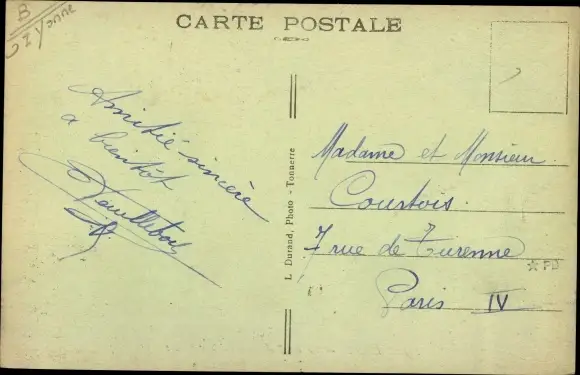 B
Yonne
CARTE POSTALE
Amitié sincère
a bientôt
L. Durand, Photo - Tonnerre
Madame et Monsieur
Courtois.
7 rue de Turenne
Paris IV